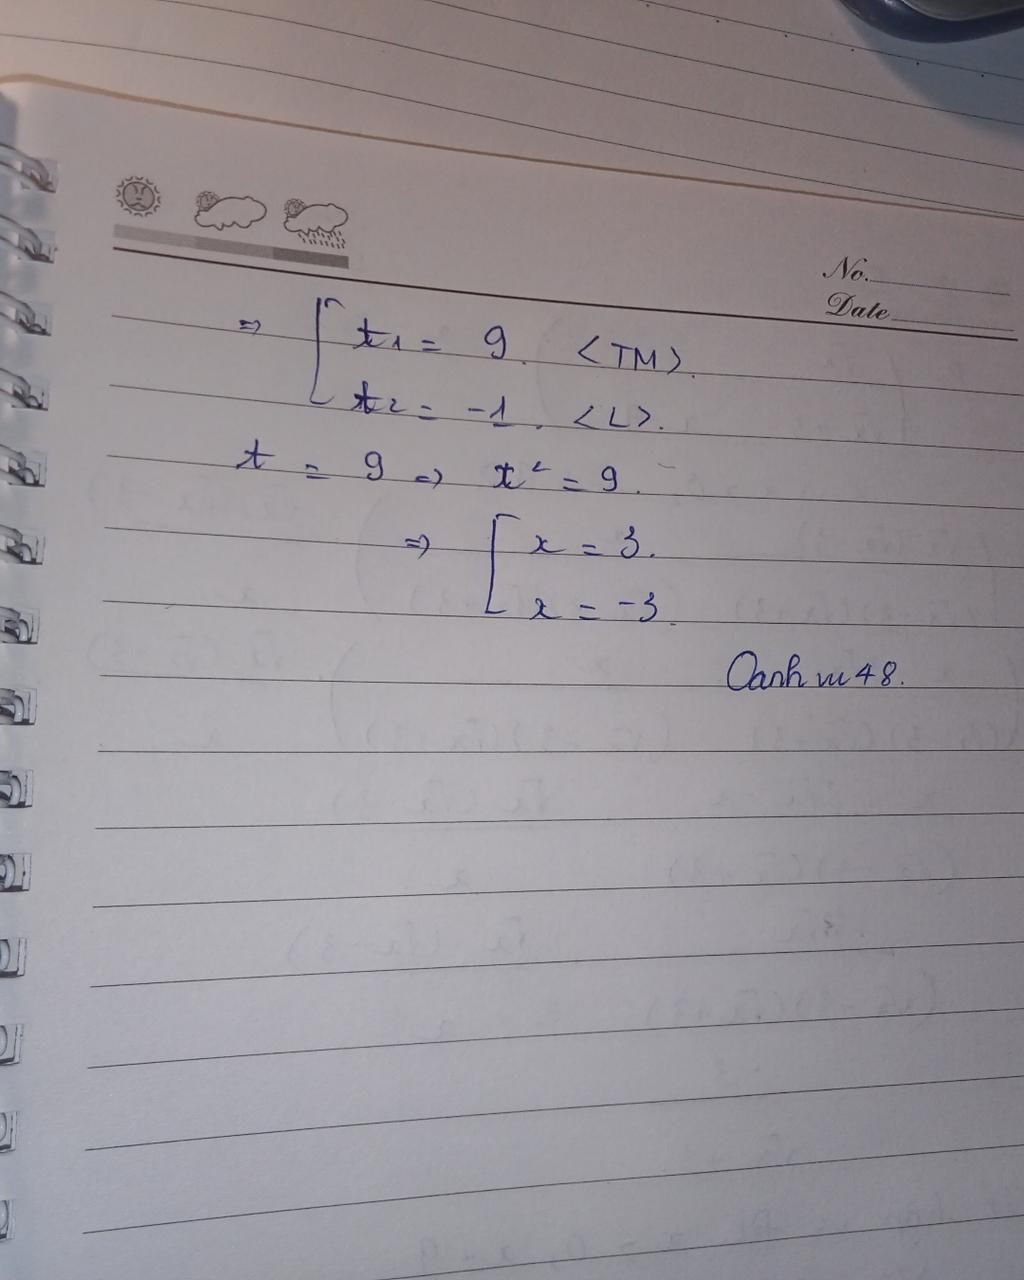 No.
Date
⇒ [ t₁ = 9. <TM>.
t₂ = -1. <L>.
t = 9 ⇒ x² = 9.
⇒ [ x = 3.
x = -3.
Oanh vu 48.